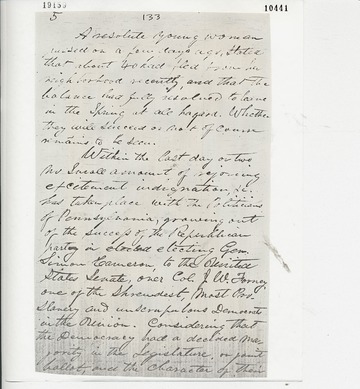 19159
10441
5 133
A resolute young woman
on a few days ago, stated
that about 40 had fled from
neighborhood recently, and that the
balance was fully resolved to leave
in the Spring at all hazard. Whether
they will succeed or not of course
remains to be seen.
Within the last day or two
no Small amount of rejoicing
excitement indignation, &c.
has taken place with the Politicians
of Pennsylvania; growing out
of the success of the Republican
party in elected electing Gen.
Simon Cameron to the United
States Senate, over Col. J. W. Forney
one of the Shrewdest, Most Pro-
Slavery and unscrupulous Democrats
in the Union. Considering that
the Democracy had a decided Ma-
jority in the Legislature on joint
ballot, and the character of their